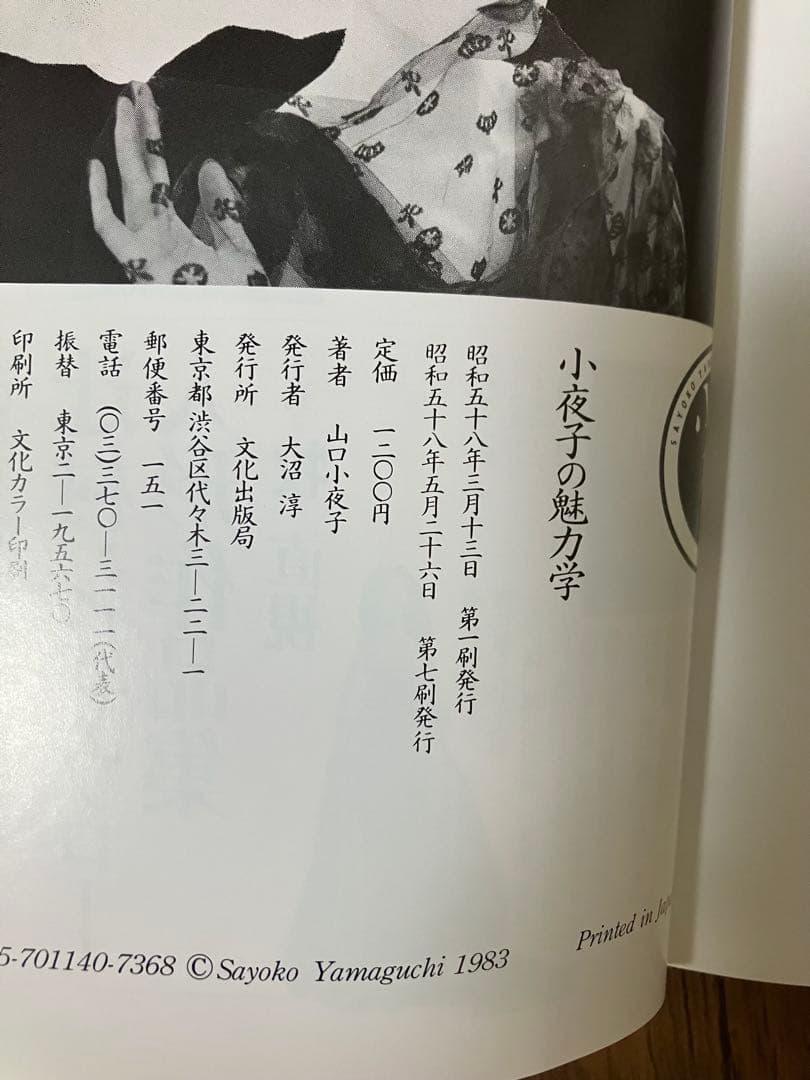 小夜子の魅力学
昭和五十八年三月十三日　第一刷発行
昭和五十八年五月二十六日　第七刷発行
定価　一二〇〇円
著者　山口小夜子
発行者　大沼 淳
発行所　文化出版局
東京都渋谷区代々木三―二二―一
郵便番号　一五一
電話　(〇三)三七〇―三一一一(代表)
振替　東京二―一九五六七〇
印刷所　文化カラー印刷
5-701140-7368 ©Sayoko Yamaguchi 1983
Printed in
SAYOKO